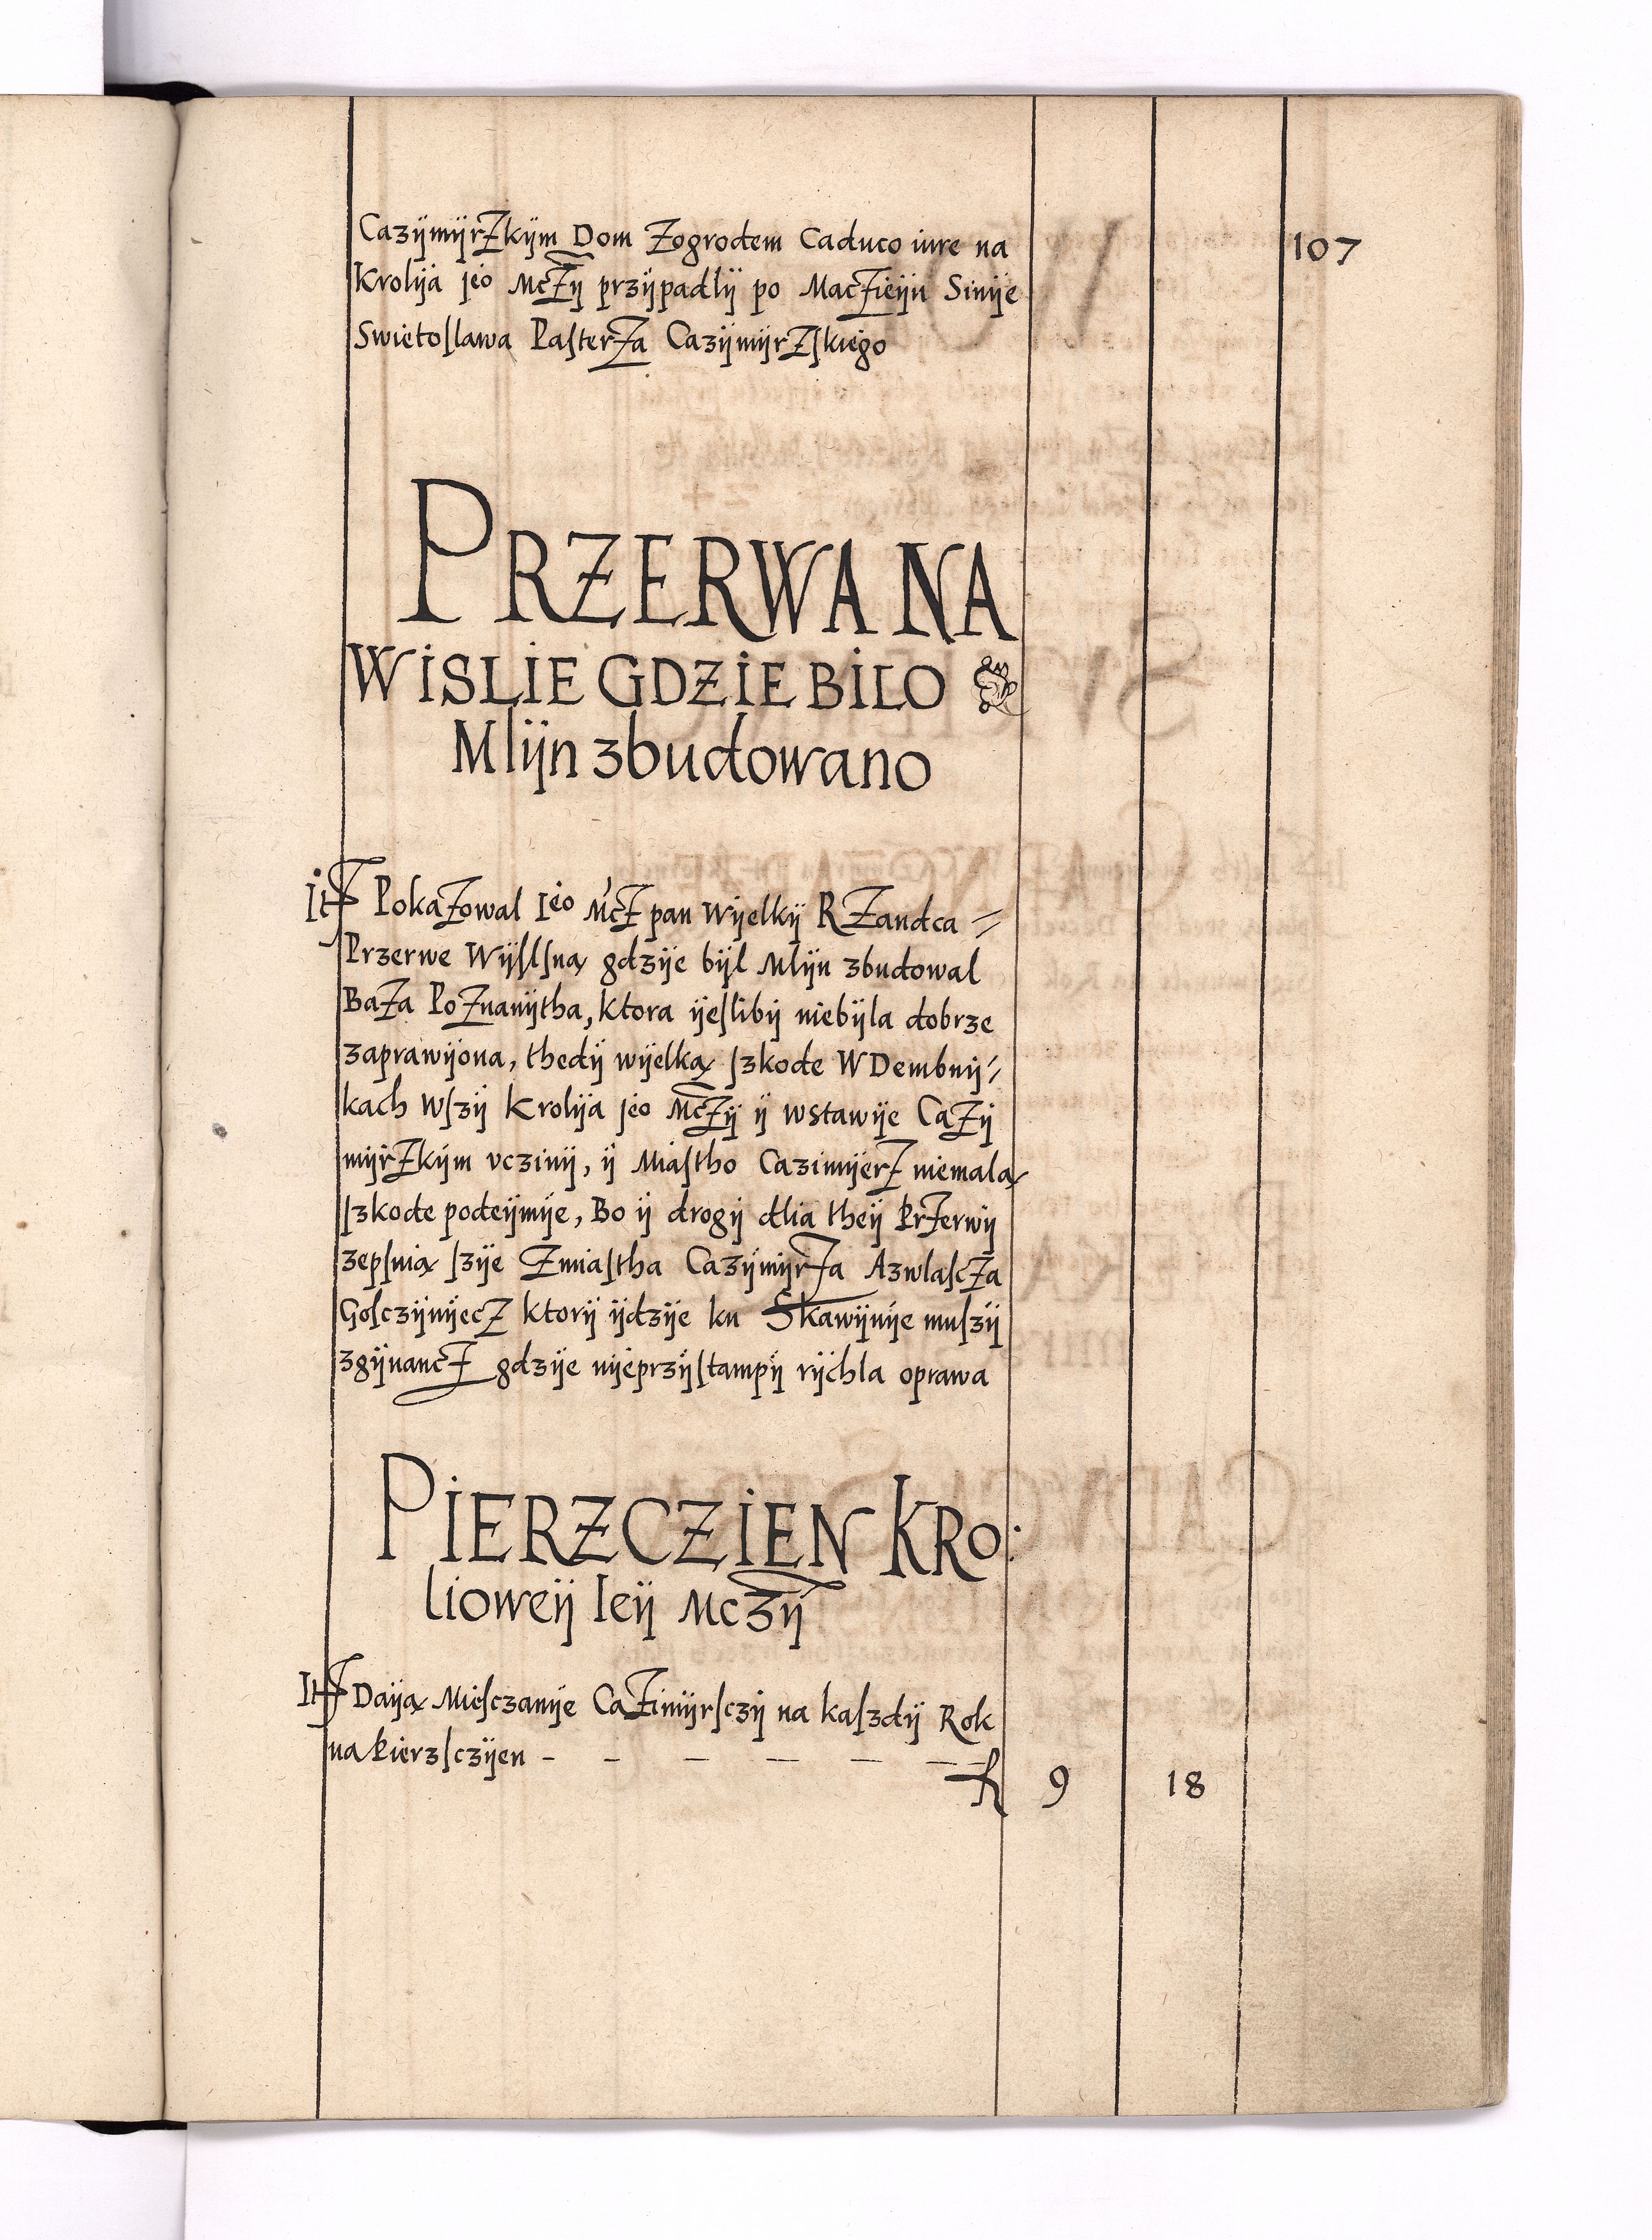 107
Cazÿmÿrzkÿm Dom Zogrodem Caduco iure na
Krolÿa jeo Mczÿ przÿpadlÿ po Maczieÿu Sinÿe
Swietoſlawa Paſterza Cazÿmÿrzſkiego
PRZERWA NA
WISLIE GDZIE BILO
Mlÿn zbudowano
It Pokazowal Ieo Mcz pan Wÿelkÿ RZandca =
Przerwe Wÿſlſną gdzÿe bÿl Mlÿn zbudowal
Baza Poznanÿtha, ktora ÿeſlibÿ niebÿla dobrze
zaprawÿona, thedÿ wÿelką ſzkode W Dembnÿ=
kach Wſzÿ Krolÿa jeo Mczÿ ÿ wstawÿe Cazÿ
mÿrzkÿm vczinÿ, ÿ Miaſtho Cazimÿerz niemalą
ſzkode podeÿmÿe, Bo ÿ drogÿ dlia theÿ Przerwÿ
zepſuią ſzÿe Zmiaſtha Cazÿmÿrza Azwlaſcza
Goſczÿnÿecz ktorÿ ÿdzÿe ku Skawÿnÿe muſzÿ
zgÿnancz gdzÿe nÿeprzÿſtampÿ rÿchla oprawa
PIERZCZIEN KRO:
lioweÿ Ieÿ Mczÿ
It Daÿą Mieſczanÿe Cazimÿrſczÿ na kaſzdÿ Rok
na Pierzſczÿen - - - - - -
R 9 18